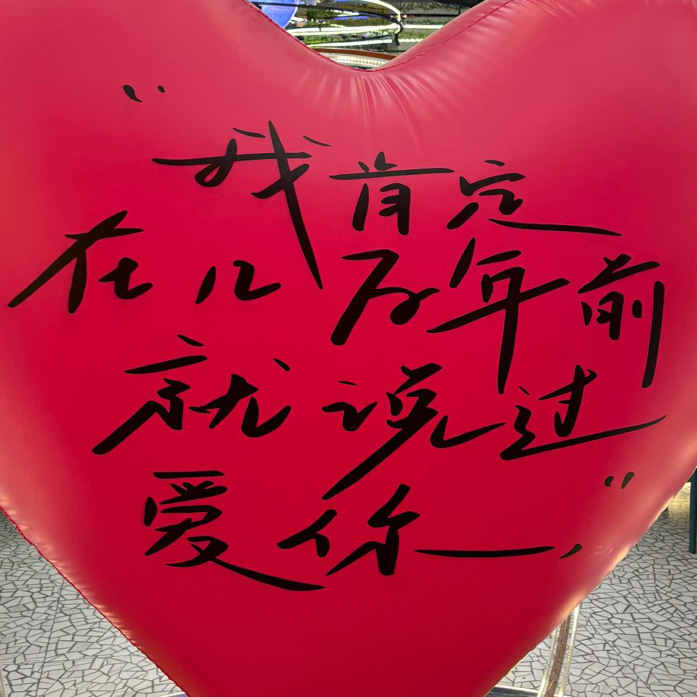 “我肯定
在几万年前
就说过
爱你,”